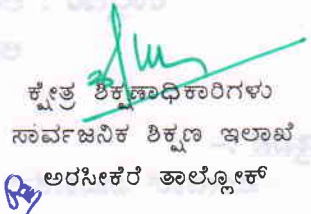 ಕ್ಷೇತ್ರ ಶಿಕ್ಷಣಾಧಿಕಾರಿಗಳು
ಸಾರ್ವಜನಿಕ ಶಿಕ್ಷಣ ಇಲಾಖೆ
ಅರಸೀಕೆರೆ ತಾಲ್ಲೋಕ್